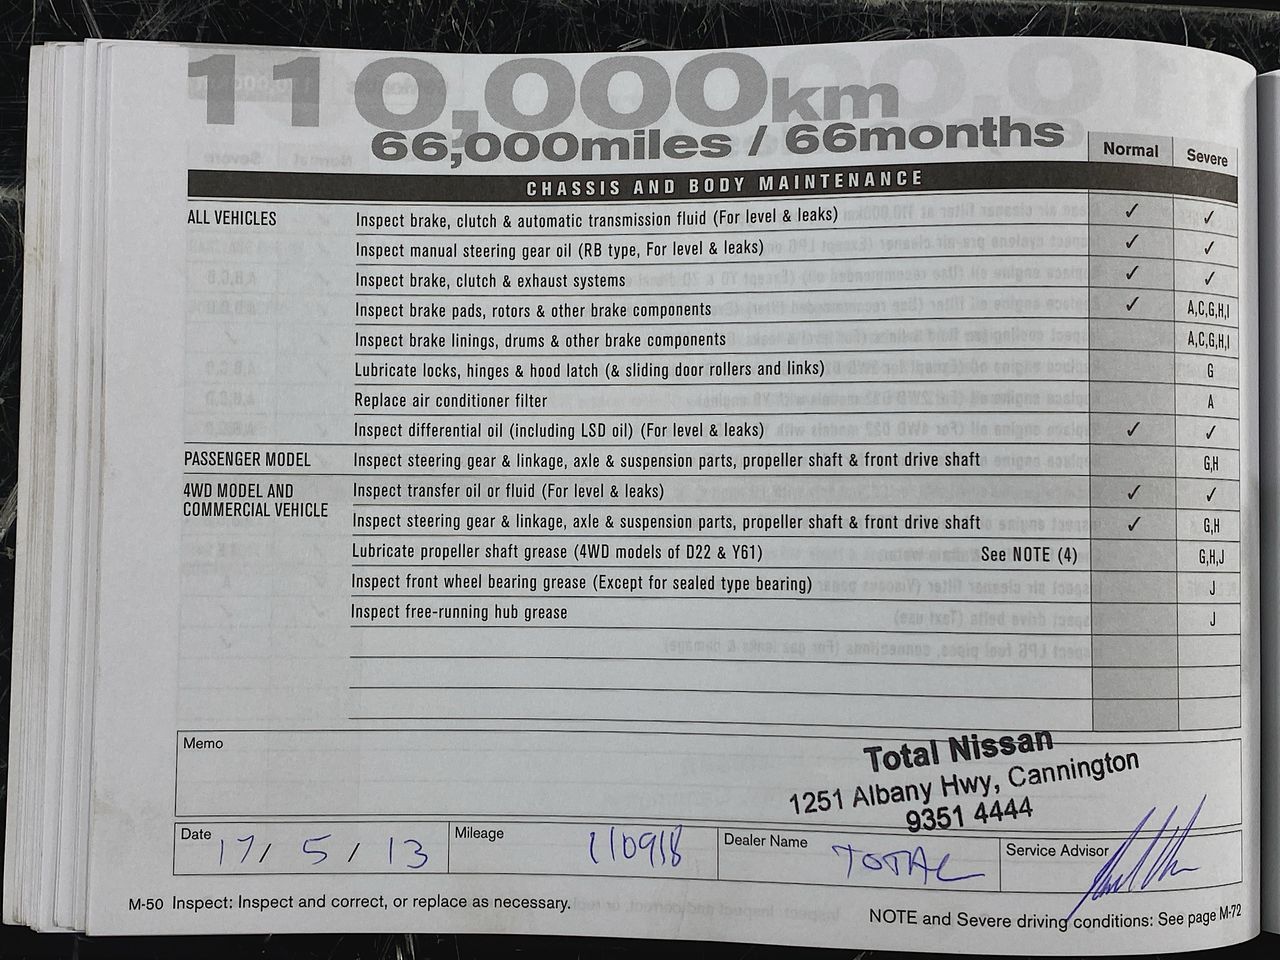 110,000km
66,000miles / 66months
Normal Severe
CHASSIS AND BODY MAINTENANCE
ALL VEHICLES Inspect brake, clutch & automatic transmission fluid (For level & leaks) ✓ ✓
Inspect manual steering gear oil (RB type, For level & leaks) ✓ ✓
Inspect brake, clutch & exhaust systems ✓ ✓
Inspect brake pads, rotors & other brake components ✓ A,C,G,H,I
Inspect brake linings, drums & other brake components A,C,G,H,I
Lubricate locks, hinges & hood latch (& sliding door rollers and links) G
Replace air conditioner filter A
Inspect differential oil (including LSD oil) (For level & leaks) ✓ ✓
PASSENGER MODEL Inspect steering gear & linkage, axle & suspension parts, propeller shaft & front drive shaft G,H
4WD MODEL AND Inspect transfer oil or fluid (For level & leaks) ✓ ✓
COMMERCIAL VEHICLE Inspect steering gear & linkage, axle & suspension parts, propeller shaft & front drive shaft ✓ G,H
Lubricate propeller shaft grease (4WD models of D22 & Y61) See NOTE (4) G,H,J
Inspect front wheel bearing grease (Except for sealed type bearing) J
Inspect free-running hub grease J
Memo
Total Nissan
1251 Albany Hwy, Cannington
9351 4444
Date 17/ 5 / 13 Mileage 110918 Dealer Name TOTAL Service Advisor
M-50 Inspect: Inspect and correct, or replace as necessary.
NOTE and Severe driving conditions: See page M-72